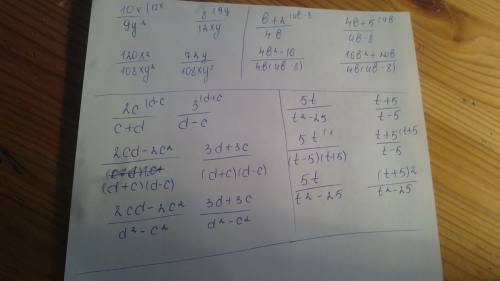 10x |12x / 9y² 8 |9y / 12xy
120x² / 108xy² 72y / 108xy²
b+2 |4b-8 / 4b 4b+5 |4b / 4b-8
4b²-16 / 4b(4b-8) 16b²+20b / 4b(4b-8)
2c |d-c / c+d 3 |d+c / d-c
2cd-2c² / (d+c)(d-c) 3d+3c / (d+c)(d-c)
2cd-2c² / d²-c² 3d+3c / d²-c²
5t / t²-25 t+5 / t-5
5t |1 / (t-5)(t+5) t+5 |t+5 / t-5
5t / t²-25 (t+5)2 / t²-25